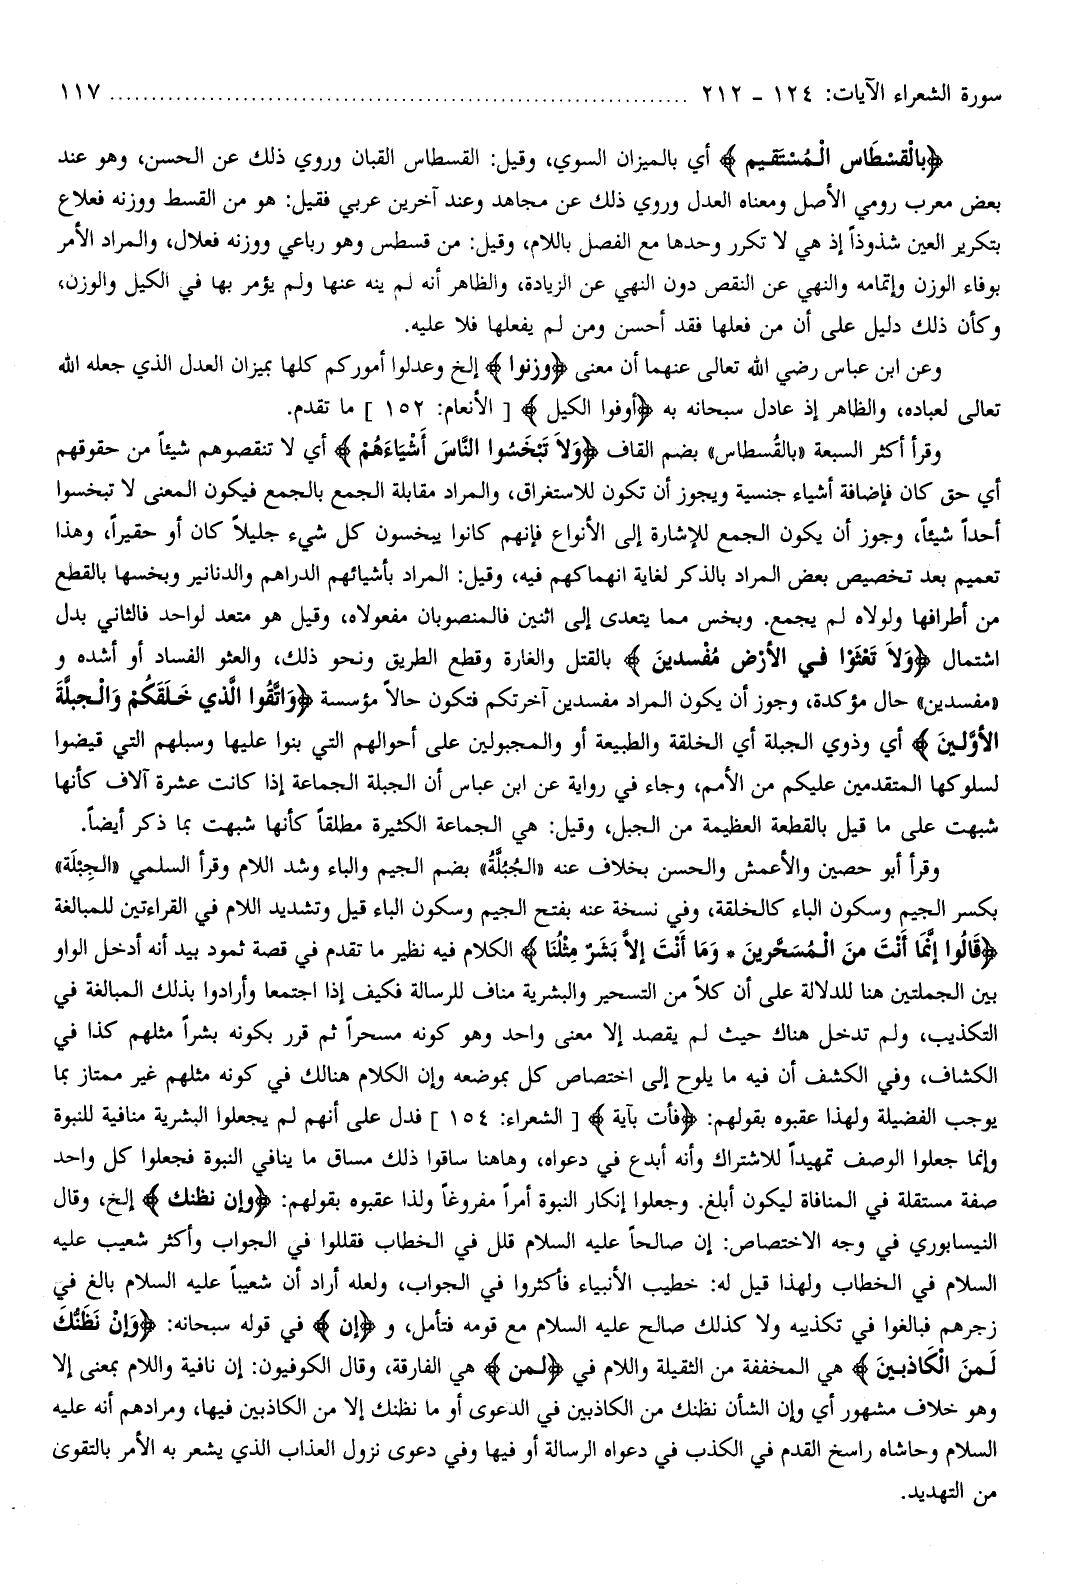 سورة الشعراء الآيات: ١٢٤ ـ ٢١٢ ........................................................................ ١١٧
﴿بالْقسْطَاس الْمُسْتَقيم﴾ أي بالميزان السوي، وقيل: القسطاس القبان وروي ذلك عن الحسن، وهو عند
بعض معرب رومي الأصل ومعناه العدل وروي ذلك عن مجاهد وعند آخرين عربي فقيل: هو من القسط ووزنه فعلاع
بتكرير العين شذوذاً إذ هي لا تكرر وحدها مع الفصل باللام، وقيل: من قسطس وهو رباعي ووزنه فعلال، والمراد الأمر
بوفاء الوزن وإتمامه والنهي عن النقص دون النهي عن الزيادة، والظاهر أنه لم ينه عنها ولم يؤمر بها في الكيل والوزن،
وكأن ذلك دليل على أن من فعلها فقد أحسن ومن لم يفعلها فلا عليه.
وعن ابن عباس رضي الله تعالى عنهما أن معنى ﴿وزنوا﴾ إلخ وعدلوا أموركم كلها بميزان العدل الذي جعله الله
تعالى لعباده، والظاهر إذ عادل سبحانه به ﴿أوفوا الكيل﴾ [ الأنعام: ١٥٢ ] ما تقدم.
وقرأ أكثر السبعة «بالقُسطاس» بضم القاف ﴿وَلاَ تَبْخَسُوا النَّاسَ أَشْيَاءَهُمْ﴾ أي لا تنقصوهم شيئاً من حقوقهم
أي حق كان فإضافة أشياء جنسية ويجوز أن تكون للاستغراق، والمراد مقابلة الجمع بالجمع فيكون المعنى لا تبخسوا
أحداً شيئاً، وجوز أن يكون الجمع للإشارة إلى الأنواع فإنهم كانوا يبخسون كل شيء جليلاً كان أو حقيراً، وهذا
تعميم بعد تخصيص بعض المراد بالذكر لغاية انهماكهم فيه، وقيل: المراد بأشيائهم الدراهم والدنانير وبخسها بالقطع
من أطرافها ولولاه لم يجمع. وبخس مما يتعدى إلى اثنين فالمنصوبان مفعولاه، وقيل هو متعد لواحد فالثاني بدل
اشتمال ﴿وَلاَ تَعْثَوْا في الأَرْض مُفْسدينَ﴾ بالقتل والغارة وقطع الطريق ونحو ذلك، والعثو الفساد أو أشده و
«مفسدين» حال مؤكدة، وجوز أن يكون المراد مفسدين آخرتكم فتكون حالاً مؤسسة ﴿وَاتَّقُوا الَّذي خَلَقَكُمْ وَالْجبلَّةَ
الأوَّلينَ﴾ أي وذوي الجبلة أي الخلقة والطبيعة أو والمجبولين على أحوالهم التي بنوا عليها وسبلهم التي قيضوا
لسلوكها المتقدمين عليكم من الأمم، وجاء في رواية عن ابن عباس أن الجبلة الجماعة إذا كانت عشرة آلاف كأنها
شبهت على ما قيل بالقطعة العظيمة من الجبل، وقيل: هي الجماعة الكثيرة مطلقاً كأنها شبهت بما ذكر أيضاً.
وقرأ أبو حصين والأعمش والحسن بخلاف عنه «الجُبُلَّةُ» بضم الجيم والباء وشد اللام وقرأ السلمي «الجِبْلَة»
بكسر الجيم وسكون الباء كالخلقة، وفي نسخة عنه بفتح الجيم وسكون الباء قيل وتشديد اللام في القراءتين للمبالغة
﴿قَالُوا إنَّمَا أَنْتَ منَ الْمُسَحَّرينَ * وَمَا أَنْتَ إلاَّ بَشَرٌ مثْلُنَا﴾ الكلام فيه نظير ما تقدم في قصة ثمود بيد أنه أدخل الواو
بين الجملتين هنا للدلالة على أن كلاً من التسحير والبشرية مناف للرسالة فكيف إذا اجتمعا وأرادوا بذلك المبالغة في
التكذيب، ولم تدخل هناك حيث لم يقصد إلا معنى واحد وهو كونه مسحراً ثم قرر بكونه بشراً مثلهم كذا في
الكشاف، وفي الكشف أن فيه ما يلوح إلى اختصاص كل بموضعه وإن الكلام هنالك في كونه مثلهم غير ممتاز بما
يوجب الفضيلة ولهذا عقبوه بقولهم: ﴿فأت بآية﴾ [ الشعراء: ١٥٤ ] فدل على أنهم لم يجعلوا البشرية منافية للنبوة
وإنما جعلوا الوصف تمهيداً للاشتراك وأنه أبدع في دعواه، وهاهنا ساقوا ذلك مساق ما ينافي النبوة فجعلوا كل واحد
صفة مستقلة في المنافاة ليكون أبلغ. وجعلوا إنكار النبوة أمراً مفروغاً ولذا عقبوه بقولهم: ﴿وإن نظنك﴾ إلخ، وقال
النيسابوري في وجه الاختصاص: إن صالحاً عليه السلام قلل في الخطاب فقللوا في الجواب وأكثر شعيب عليه
السلام في الخطاب ولهذا قيل له: خطيب الأنبياء فأكثروا في الجواب، ولعله أراد أن شعيباً عليه السلام بالغ في
زجرهم فبالغوا في تكذيبه ولا كذلك صالح عليه السلام مع قومه فتأمل، و ﴿إن﴾ في قوله سبحانه: ﴿وَإنْ نَظُنُّكَ
لَمنَ الْكَاذبينَ﴾ هي المخففة من الثقيلة واللام في ﴿لمن﴾ هي الفارقة، وقال الكوفيون: إن نافية واللام بمعنى إلا
وهو خلاف مشهور أي وإن الشأن نظنك من الكاذبين في الدعوى أو ما نظنك إلا من الكاذبين فيها، ومرادهم أنه عليه
السلام وحاشاه راسخ القدم في الكذب في دعواه الرسالة أو فيها وفي دعوى نزول العذاب الذي يشعر به الأمر بالتقوى
من التهديد.